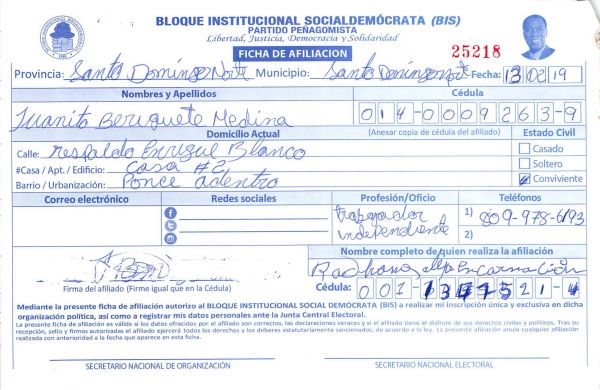 BLOQUE INSTITUCIONAL SOCIALDEMÓCRATA (BIS)
PARTIDO PEÑAGOMISTA
Libertad, Justicia, Democracia y Solidaridad
FICHA DE AFILIACION
25218
Provincia: Santo Domingo Norte Municipio: Santo Domingo Norte Fecha: 13 02 19
Nombres y Apellidos Cédula
Juanito Beriguete Medina 014-0009263-9
Domicilio Actual (Anexar copia de cédula del afiliado) Estado Civil
Calle: respaldo Enrique Blanco Casado
#Casa / Apt. / Edificio: Casa #2 Soltero
Barrio / Urbanización: Ponce adentro Conviviente
Correo electrónico Redes sociales Profesión/Oficio Teléfonos
trabajador independiente 1) 809-978-6193
2)
Nombre completo de quien realiza la afiliación
Encarnación
Firma del afiliado (Firme igual que en la Cédula) Cédula: 001-
Mediante la presente ficha de afiliación autorizo al BLOQUE INSTITUCIONAL SOCIAL DEMÓCRATA (BIS) a realizar mi inscripción única y exclusiva en dicha
organización política, así como a registrar mis datos personales ante la Junta Central Electoral.
La presente ficha de afiliación es válida si los datos ofrecidos por el afiliado son correctos, las declaraciones veraces y si el afiliado tiene el disfrute de sus derechos civiles y políticos. Tras su
recepción, sello y firmas autorizadas el afiliado ejercerá todos los derechos y los deberes estatutariamente sancionados, de acuerdo a la ley. La presente afiliación anula cualquier afiliación
realizada con anterioridad a la fecha que aparece en esta ficha.
SECRETARIO NACIONAL DE ORGANIZACIÓN SECRETARIO NACIONAL ELECTORAL